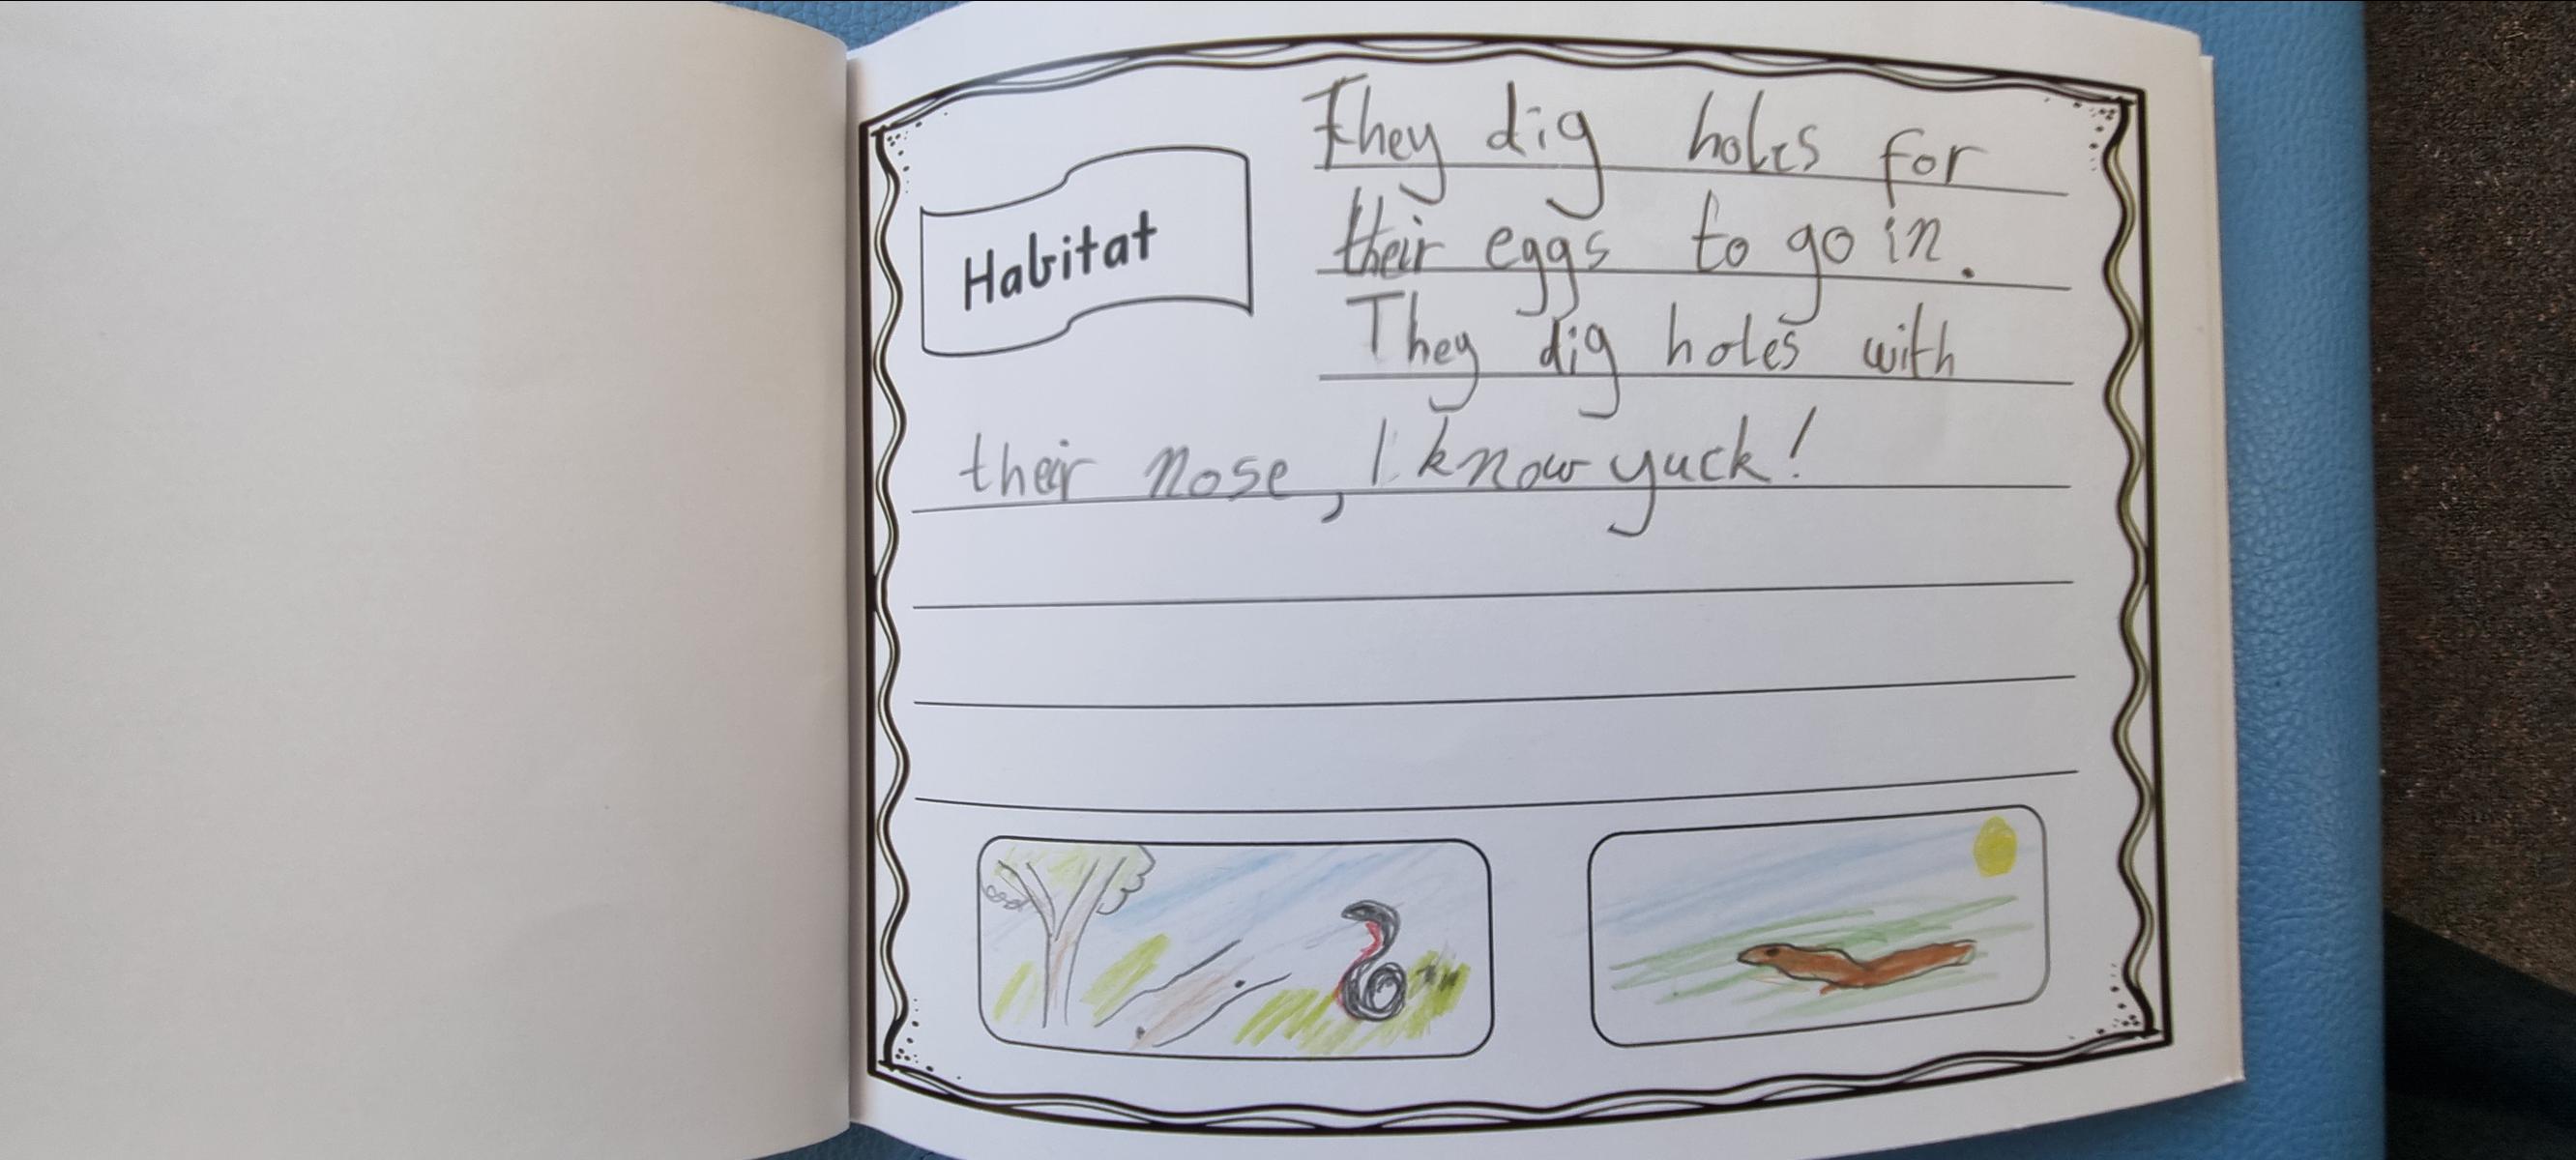 Habitat
They dig holes for
their eggs to go in.
They dig holes with
their nose, I know yuck!